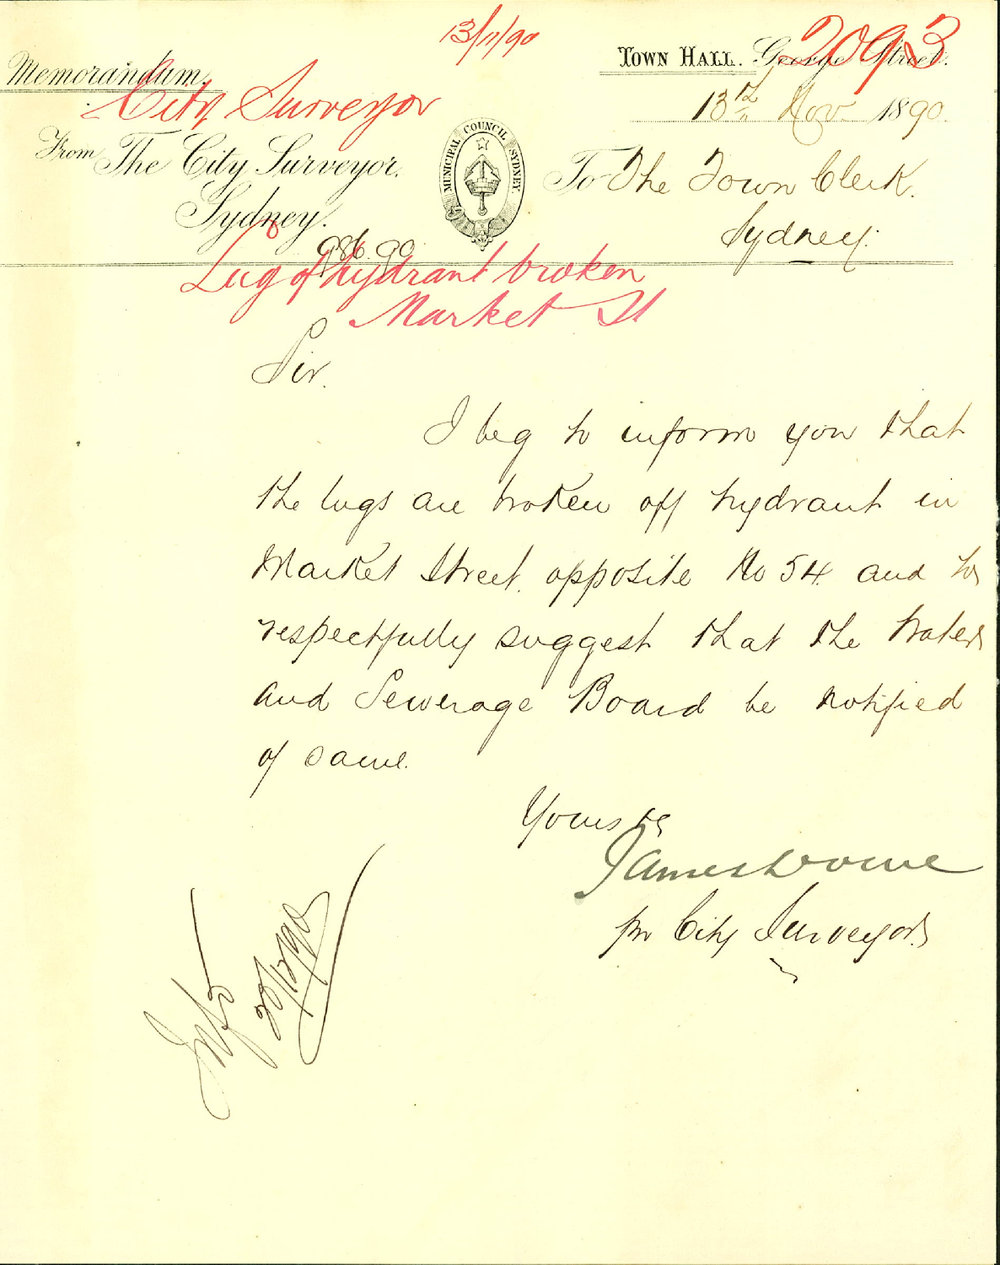 13/11/90
2093
Memorandum.
Town Hall. George Street.
City Surveyor
13th Nov 1890.
From The City Surveyor.
Sydney.
MUNICIPAL COUNCIL SYDNEY
To The Town Clerk.
Sydney.
986.90
Lug of hydrant broken
Market St
Sir.
I beg to inform you that
the lugs are broken off hydrant in
Market Street. opposite No 54. and to
respectfully suggest that the Water
and Sewerage Board be notified
of same.
Yours &c
James
pr City Surveyor
22/12/90